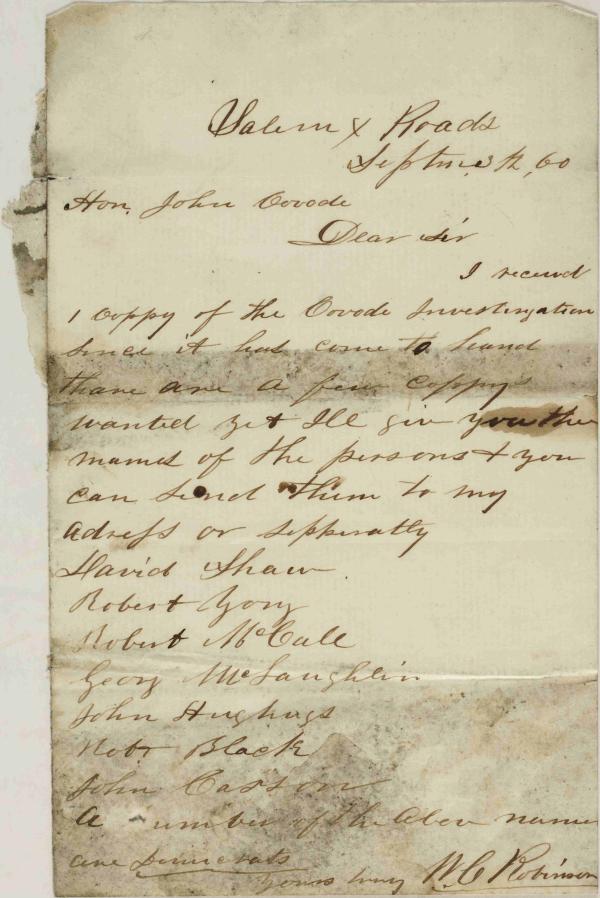 Salem X Roads
Septm 3th, 60
Hon. John Covode
Dear Sir
I receivd
1 Coppy of the Covode Investigation
since it has come to hand
thare are a few coppys
wanted yet Ill giv you the
names of the persons & you
can send them to my
adress or sepperatly
David Shaw
Robert Yory
Robert McCall
Georg McLaughlin
John Hughugs
Robt Black
John Casson
A number of the Abov names
are Democrats
Yours truly W. C. Robinson